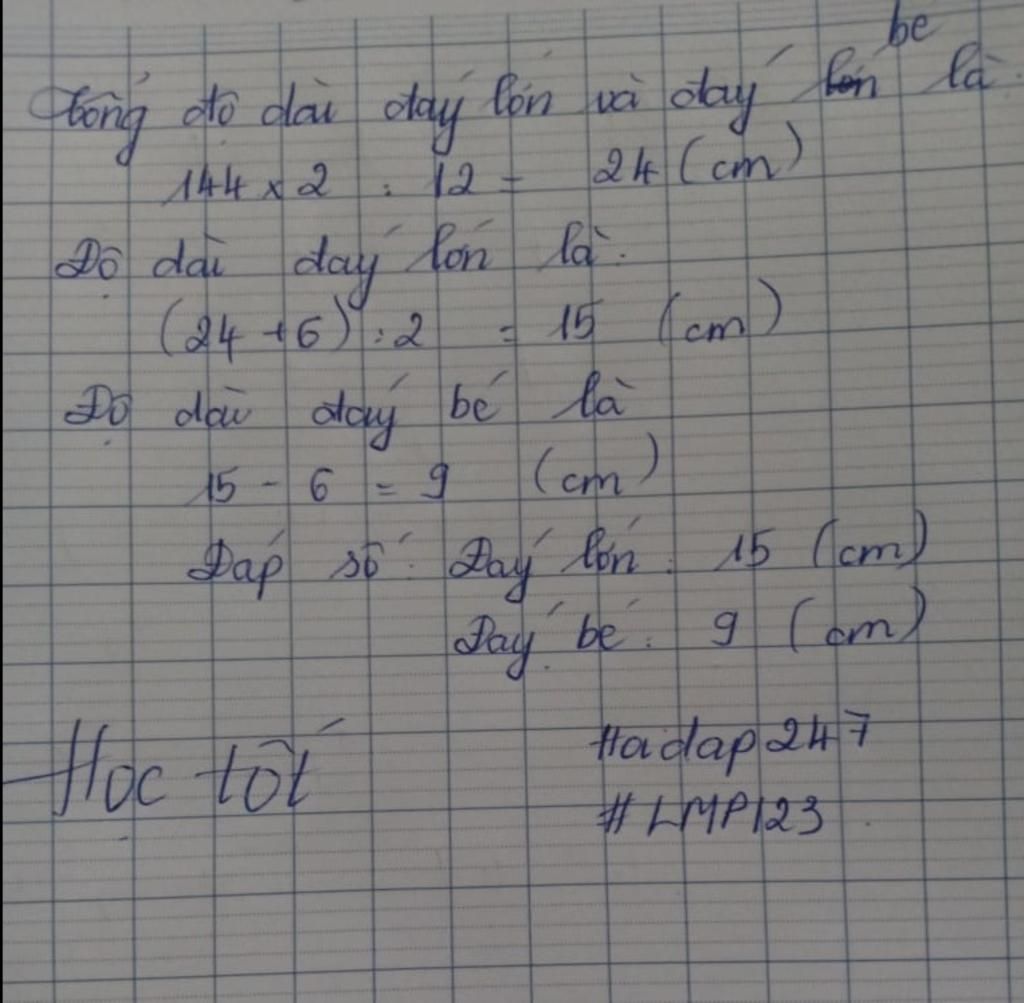 bé
Tổng độ dài đáy lớn và đáy lớn là
144 x 2 : 12 = 24 (cm)
Độ dài đáy lớn là:
(24 + 6) : 2 = 15 (cm)
Độ dài đáy bé là
15 - 6 = 9 (cm)
Đáp số: Đáy lớn: 15 (cm)
Đáy bé: 9 (cm)
Học tốt
Hadap247
#LMP123